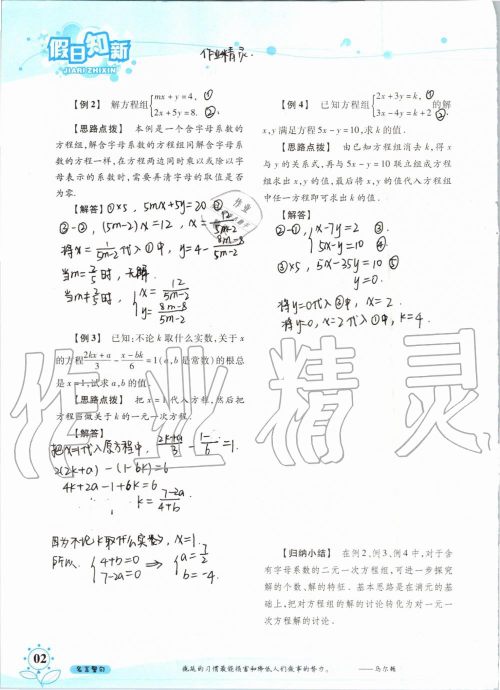 假日知新
JIARI ZHIXIN
作业精灵.
【例2】 解方程组{mx+y=4, ①
2x+5y=8. ②
【思路点拨】 本例是一个含字母系数的
方程组,解含字母系数的方程组同解含字母系
数的方程一样,在方程两边同时乘以或除以字
母表示的系数时,需要弄清字母的取值是否
为零.
【解答】①×5, 5mx+5y=20 ③
③-②, (5m-2)x=12, x=12/5m-2
将x=代入①中, y=4-
当m=2/5时, 无解.
当m≠2/5时, {x=12/5m-2
y=8m-8/5m-2
【例3】 已知:不论k取什么实数,关于x
的方程2kx+a/3-x-bk/6=1(a,b是常数)的根总
是x=1,试求a,b的值.
【思路点拨】 把x=1代入方程,然后把
方程当做关于k的一元一次方程.
【解答】
把x=1代入原方程中, 2k+a/3-=1.
2(2k+a)-(1-bk)=6
4k+2a-1+bk=6
k=7-2a/4+b
因为不论k取什么实数, x=1.
所以 {4+b=0
7-2a=0 ⇒ {a=7/2
b=-4.
【例4】 已知方程组{2x+3y=k, ①
3x-4y=k+2 ②的解
x,y满足方程5x-y=10,求k的值.
【思路点拨】 由已知方程组消去k,得x
与y的关系式,再与5x-y=10联立组成方程
组求出x,y的值,最后将x,y的值代入方程组
中任一方程即可求出k的值.
【解答】
②-①, {x-7y=2 ③
5x-y=10 ④
③×5, 5x-35y=10 ⑤
y=0.
将y=0代入③中, x=2.
将y=0, x=2代入①中, k=4.
【归纳小结】 在例2、例3、例4中,对于含
有字母系数的二元一次方程组,可进一步探究
解的个数、解的特征. 基本思路是在消元的基
础上,把对方程组的解的讨论转化为对一元一
次方程解的讨论.
作业精灵
02
名言警句
拖延的习惯最能损害和降低人们做事的努力. ——马尔顿